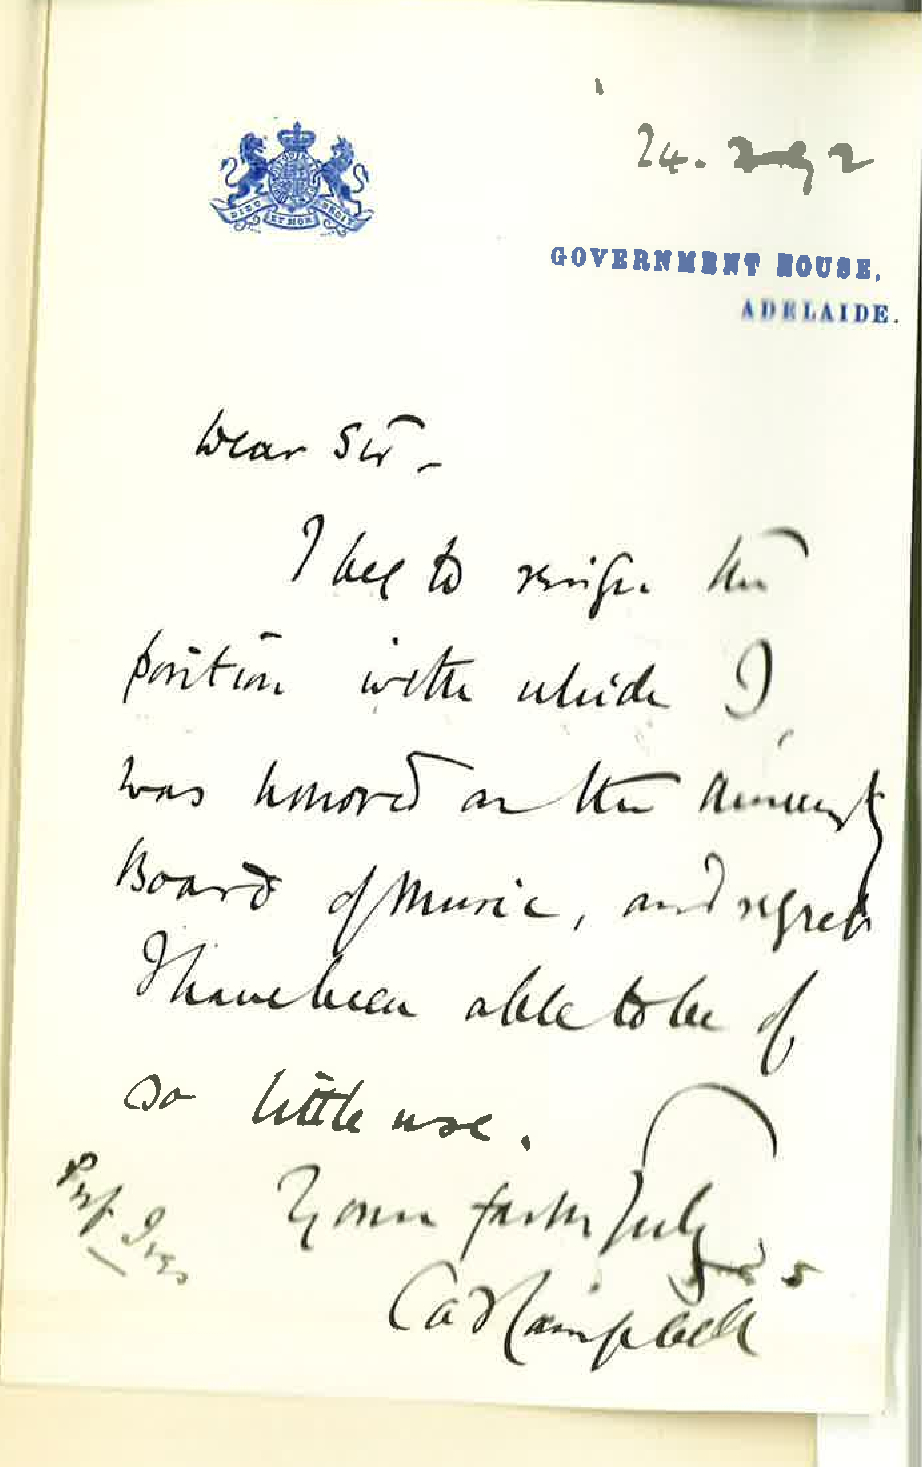 24.
GOVERNMENT HOUSE,
ADELAIDE.
Dear Sir -
I beg to resign the
position with which I
was honored on the University
Board of Music, and regret
I have been able to be of
so little use.
Yours faithfully
Campbell
Prof. Ives